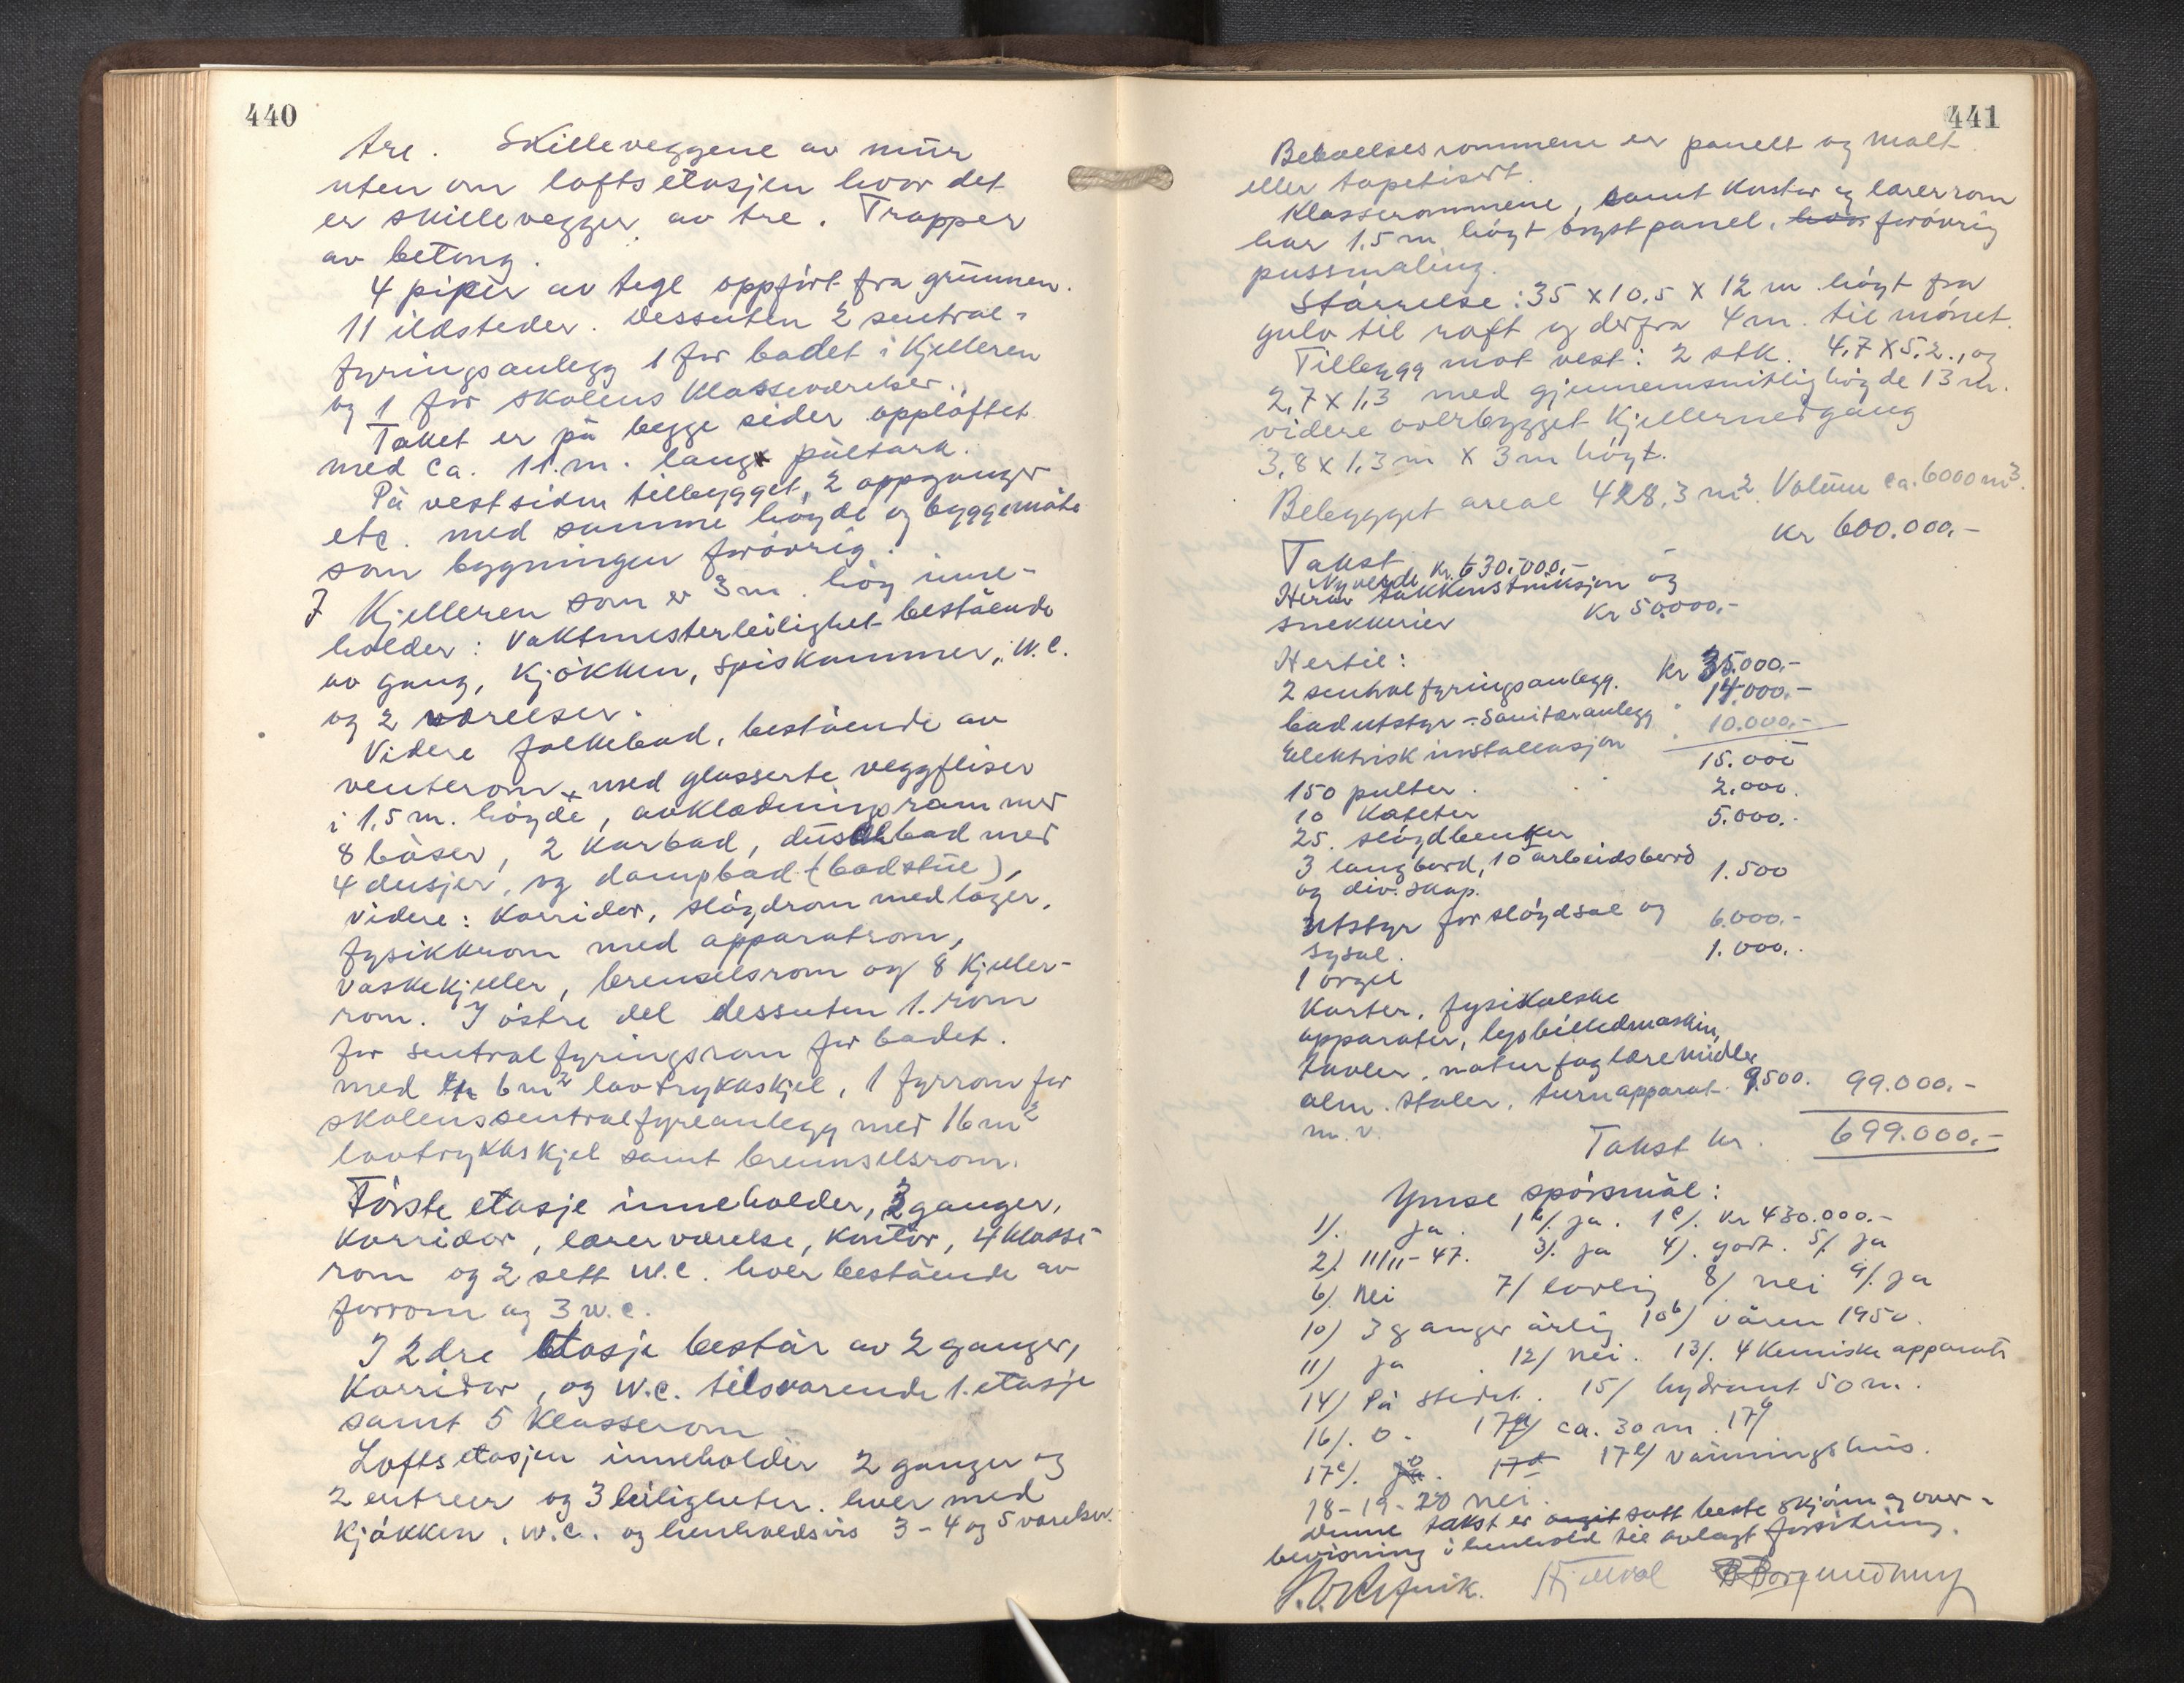 440
tre. Skilleveggene av mur
uten om loftsetasjen hvor det
er skillevegger av tre. Trapper
av betong.
4 piper av tegl oppfört fra grunnen.
11 ildsteder. Dessuten 2 sentral-
fyringsanlegg 1 for badet i Kjelleren
og 1 for skolens Klasseværelser.
Taket er på begge sider opplöftet
med ca. 11.m. lang pultark.
På vestsiden tilbygget, 2 oppganger
etc. med samme höyde og byggemåte
som bygningen forövrig.
I Kjelleren som er 3m. höy inne-
holder: Vaktmesterleilighet bestående
av gang, Kjökken, spiskammer, W.C.
og 2 værelser.
Videre folkebad, bestående av
venterom, med glasserte veggfliser
i 1,5 m. höyde, avkledningsrom med
8 båser, 2 Karbad, dusjbad med
4 dusjer, og dampbad (badstue),
videre: Korridor, slöydrom med lager,
fysikkrom med apparatrom,
vaskekjeller, brenselsrom og 8 Kjeller-
rom. I östre del dessuten 1. rom
for sentralfyringsrom for badet.
med 6m² lavtrykkskjel, 1 fyrrom for
skolens sentralfyreanlegg med 16m²
lavtrykkskjel samt brennselsrom.
Förste etasje inneholder, 2 ganger,
Korridor, lærerværelse, Kontor, 4 Klasse-
rom og 2 sett W.C. hver bestående av
forrom og 3 w.c.
I 2dre etasje består av 2 ganger,
Korridor, og W.C. tilsvarende 1. etasje
samt 5 Klasserom
Loftsetasjen inneholder 2 ganger og
2 entreer og 3 leiligheter. hver med
Kjökken, W.C. og henholdsvis 3-4 og 5 værelser.
441
Beboelsesrommene er panelt og malt
eller tapetisert.
Klasserommene, samt Kontor og lærerrom
har 1.5 m höyt brystpanel, forövrig
pussmaling.
Störrelse: 35 x 10,5 x 12 m höyt fra
gulv til raft og derfra 4 m. til mönet.
Tillegg mot vest: 2 stk. 4,7 x 5.2., og
2,7 x 1,3 med gjennemsnitlig höyde 13 m.
videre overbygget Kjellernedgang
3,8 x 1,3 m x 3 m höyt.
Bebygget areal 428,3 m². Volum ca. 6000 m³.
Kr 600.000,-
Takst
Nyverdi Kr. 630.000,-
Herav takkonstruksjon og
snekkerier Kr 50.000,-
Hertil:
2 sentralfyringsanlegg. Kr 35.000,-
badutstyr - Sanitæranlegg " 14.000,-
Elektrisk installasjon " 10.000,-
150 pulter. 15.000
10 Kateter 2.000.
25. slöydbenker 5.000.-
3 langbord, 10 arbeidsbord
og div. skap. 1.500
Utstyr for slöydsal og
sysal. 6.000.-
1 orgel 1.000.-
Karter, fysikalske
apparater, lysbilledmaskin,
tavler, naturfaglæremidler
alm. stoler, turnapparat. 9.500. 99.000.-
m.v.
Takst kr. 699.000.-
Ymse spörsmål:
1). Ja. 1b/. ja. 1c/. Kr 430.000.-
2). 11/11-47. 3). ja 4). godt. 5/. ja
6/. Nei 7/ lovlig 8/ nei 9/. ja
10) 3 ganger årlig 10b) våren 1950.
11) Ja 12/ nei. 13/. 4 Kemiske apparater
14) På stedet. 15/ hydrant 50 m.
16/. 0. 17a/ ca. 30 m. 17b/
17c/. 17d 17e/ våningshus.
18-19-20 nei.
Denne takst er satt beste skjönn og over-
bevisning i henhold til avlagt forsikring.